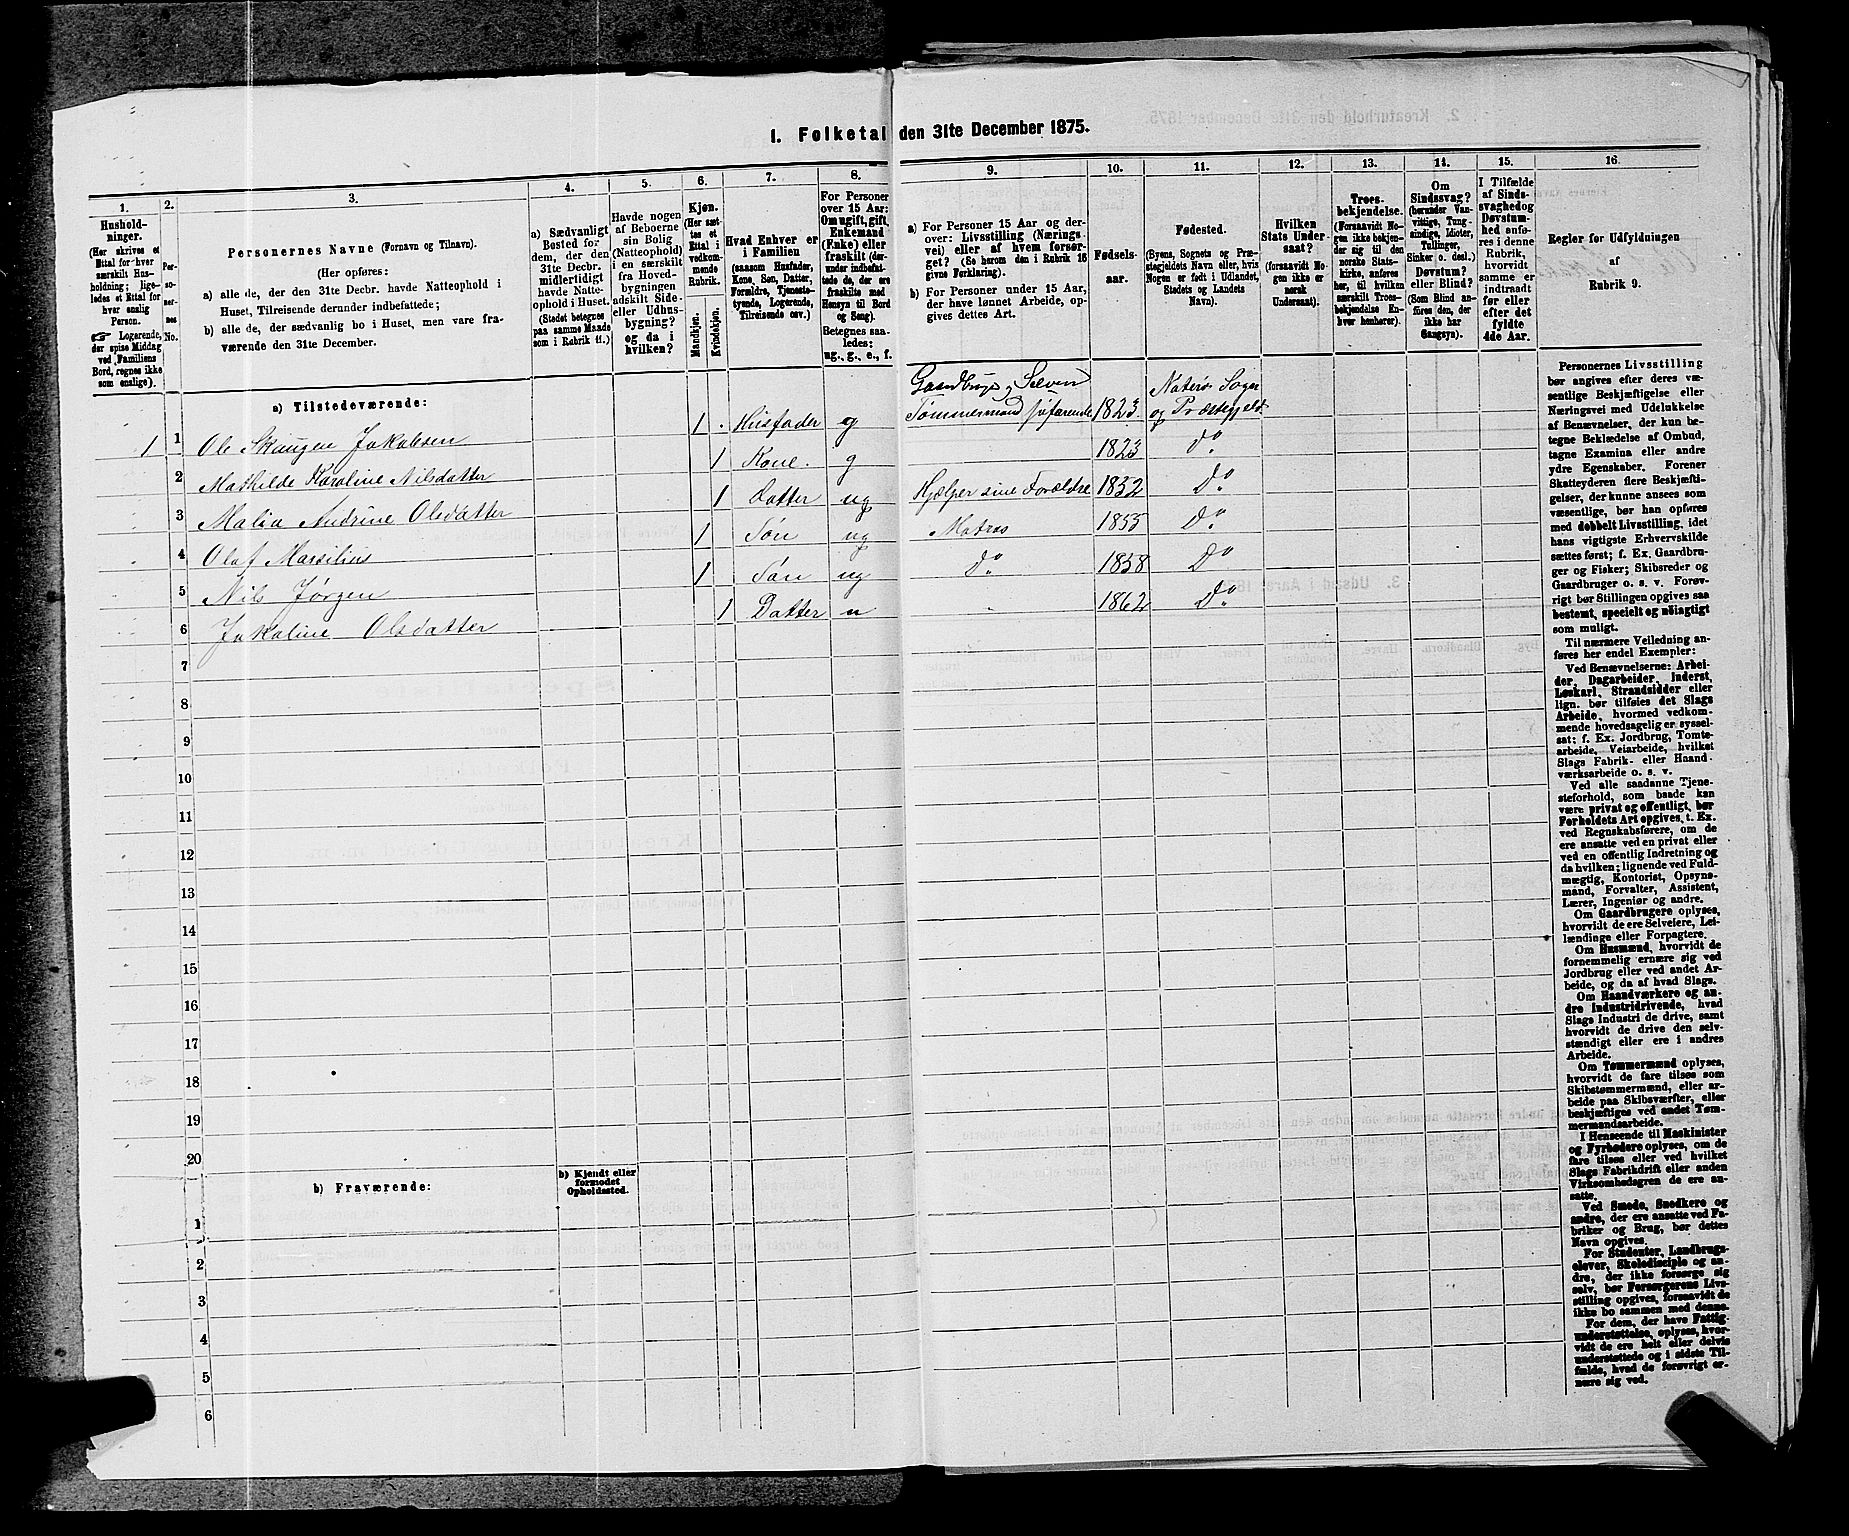 1. Folketal den 31te December 1875.
1.
Hushold-
ninger.
(Her skrives et
Ettal for hver
særskilt Hus-
holdning; lige-
ledes et Ettal for
hver enslig
Person.
☞ Logerende,
der spise Middag
ved Familiens
Bord, regnes ikke
som enslige).
2.
Per-
so-
ner-
nes
No.
3.
Personernes Navne (Fornavn og Tilnavn).
(Her opføres:
a) alle de, der den 31te Decbr. havde Natteophold i
Huset, Tilreisende derunder indbefattede;
b) alle de, der sædvanlig bo i Huset, men vare fra-
værende den 31te December.
4.
a) Sædvanligt
Bosted for
dem, der den
31te Decbr.
midlertidigt
havde Natte-
ophold i Huset.
(Stedet betegnes
paa samme Maade
som i Rubrik 11.)
5.
Havde nogen
af Beboerne
sin Bolig
(Natteophold)
i en særskilt
fra Hoved-
bygningen
adskilt Side-
eller Udhus-
bygning?
og da i
hvilken?
6.
Kjøn.
(Her sæt-
tes et
Ettal i
vedkom-
mende
Rubrik.
Mandkjøn.
Kvindekjøn.
7.
Hvad Enhver er
i Familien
(saasom Husfader,
Kone, Søn, Datter,
Forældre, Tjeneste-
tyende, Logerende,
Tilreisende osv.)
8.
For Personer
over 15 Aar:
Om ugift, gift,
Enkemand
(Enke) eller
fraskilt (der-
under indbefat-
tede de, der ere
fraskilte med
Hensyn til Bord
og Seng).
Betegnes saa-
ledes:
ug., g., e., f.
9.
a) For Personer 15 Aar og der-
over: Livsstilling (Nærings-
vei) eller af hvem forsør-
get? (Se herom den i Rubrik 16
givne Forklaring).
b) For Personer under 15 Aar,
der have lønnet Arbeide, op-
gives dettes Art.
10.
Fødsels-
aar.
11.
Fødested.
(Byens, Sognets og Præ-
stegjeldets Navn eller, hvis
Nogen er født i Udlandet,
Stedets og Landets
Navn).
12.
Hvilken
Stats Under-
saat?
(forsaavidt No-
gen ikke er
norsk
Undersaat).
13.
Troes-
bekjendelse.
(Forsaavidt No-
gen ikke bekjen-
der sig til den
norske Stats-
kirke, anføres
her, til hvilken
særskilt Troes-
bekjendelse En-
hver henhører).
14.
Om
Sindssvag?
(herunder Van-
vittige, Tung-
sindige, Idioter,
Tullinger,
Sinker o. desl.)
Døvstum?
eller Blind?
(Som Blind an-
føres den, der
ikke har
Gangsyn).
15.
I Tilfælde
af Sinds-
svaghed og
Døvstum-
hed anfø-
res i denne
Rubrik,
hvorvidt
samme er
indtraadt
før eller
efter det
fyldte
4de Aar.
16.
Regler for Udfyldningen
af
Rubrik 9.
a) Tilstedeværende:
Gaardbruger, Selveier
Nøterø Sogn
1 1 Ole Skaugen Jakobsen 1 Husfader g Tømmermand søfarende 1823 og Præstegjeld
2 Mathilde Karoline Nilsdatter 1 Kone. g 1823 Do
3 Malia Andrine Olsdatter 1 Datter ug Hjælper sine Forældre 1852 Do
4 Olaf Marsilius 1 Søn ug Matros 1855 Do
5 Nils Jørgen 1 Søn ug Do 1858 Do
6 Jakoline Olsdatter 1 Datter u " 1862 Do
7
8
9
10
11
12
13
14
15
16
17
18
19
20
b) Fraværende:
b) Kjendt eller
formodet
Opholdssted.
1
2
3
4
5
6
Personernes Livsstilling
bør angives efter deres væ-
sentlige Beskjæftigelse eller
Næringsvei med Udelukkelse
af Benævnelser, der kun be-
tegne Beklædelse af Ombud,
tagne Examina eller andre
ydre Egenskaber. Forener
Skatteyderen flere Beskjæfti-
gelser, der kunne ansees som
væsentlige, bør han opføres
med dobbelt Livsstilling, idet
hans vigtigste Erhvervskilde
sættes først; f. Ex. Gaardbru-
ger og Fisker; Skibsreder og
Gaardbruger o. s. v. Forøv-
rigt bør Stillingen opgives saa
bestemt, specielt og nøiagtigt
som muligt.
Til nærmere Veiledning an-
føres her endel Exempler:
Ved Benævnelserne: Arbei-
der, Dagarbeider, Inderst,
Løskarl, Strandsidder eller
lign. bør tilføies det Slags
Arbeide, hvormed vedkom-
mende hovedsagelig er syssel-
sat; f. Ex. Jordbrug, Tomte-
arbeide, Veiarbeide, hvilket
Slags Fabrik- eller Haand-
værksarbeide o. s. v.
Ved alle saadanne Tjene-
steforhold, som baade kan
være privat og offentligt, bør
Forholdets Art opgives, t. Ex.
ved Regnskabsførere, om de
ere ansatte ved en privat eller
ved en offentlig Indretning og
da hvilken; lignende ved Fuld-
mægtig, Kontorist, Opsyns-
mand, Forvalter, Assistent,
Lærer, Ingeniør og andre.
Om Gaardbrugere oplyses,
hvorvidt de ere Selveiere, Lei-
lændinge eller Forpagtere.
Om Husmænd, hvorvidt de
fornemmelig ernære sig ved
Jordbrug eller ved andet Ar-
beide, og da af hvad Slags.
Om Haandværkere og an-
dre Industridrivende, hvad
Slags Industri de drive, samt
hvorvidt de drive den selv-
stændigt eller ere i andres
Arbeide.
Om Tømmermænd oplyses,
hvorvidt de fare tilsøs som
Skibstømmermænd, eller ar-
beide paa Skibsværfter, eller
beskjæftiges ved andet Tøm-
mermandsarbeide.
I Henseende til Maskinister
og Fyrbødere oplyses, om de
fare tilsøs eller ved hvilket
Slags Fabrikdrift eller anden
Virksomhedsgren de ere an-
satte.
Ved Smede, Snedkere og
andre, der ere ansatte ved Fa-
briker og Brug, bør dettes
Navn opgives.
For Studenter, Landbrugs-
elever, Skoledisciple og an-
dre, der ikke forsørge sig
selv, bør Forsørgerens Livs-
stilling opgives, forsaavidt de
ikke bo sammen med denne.
For dem, der have Fattig-
understøttelse, oplyses, hvor-
vidt de ere helt eller delvis
understøttede og i sidste Til-
fælde, hvad de forøvrigt er-
nære sig ved.